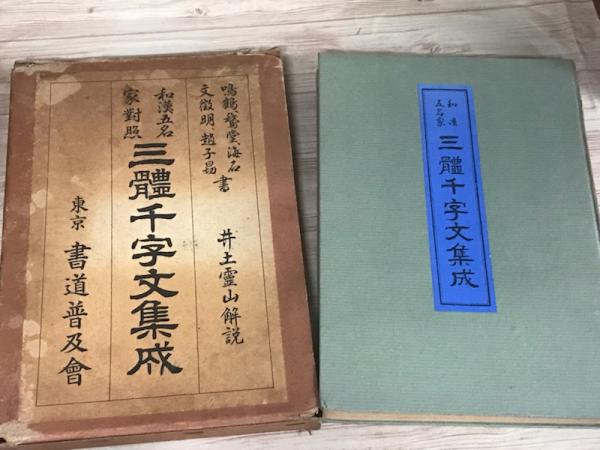 鳴鶴、鵞堂、海石
文徵明、趙子昂 書
井土靈山解説
和漢五名
家對照
三體千字文集成
東京 書道普及會
和漢
五名家
三體千字文集成